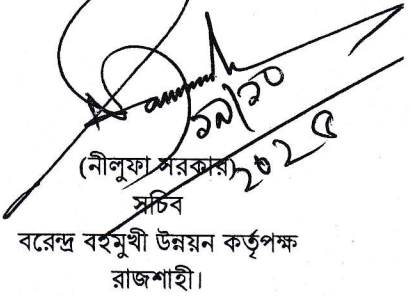 ১৯/১০
২০২৫
(নীলুফা সরকার)
সচিব
বরেন্দ্র বহুমুখী উন্নয়ন কর্তৃপক্ষ
রাজশাহী।